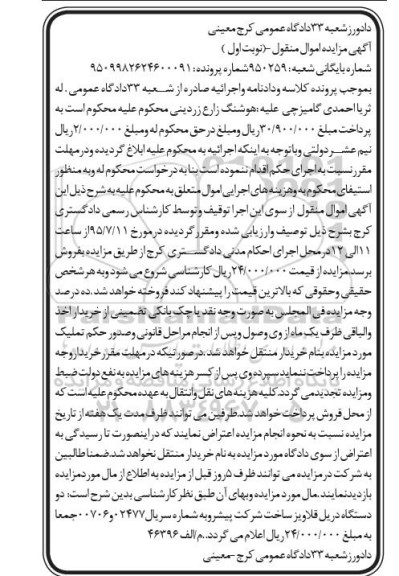 دادورز شعبه ۳۳ دادگاه عمومی کرج معینی
آگهی مزایده اموال منقول -(نوبت اول )
شماره بایگانی شعبه: ۹۵۰۲۵۹ شماره پرونده: ۹۵۰۹۹۸۲۶۲۴۶۰۰۰۹۱
بموجب پرونده کلاسه ودادنامه واجرائیه صادره از شــعبه ۳۳ دادگاه عمومی . له
ثریا احمدی گامیزچی علیه :هوشنگ زارع زردینی محکوم علیه محکوم است به
پرداخت مبلغ ۳۰/۹۰۰/۰۰۰ ریال ومبلغ در حق محکوم له ومبلغ ۲/۰۰۰/۰۰۰ ریال
نیم عشـر دولتی وباتوجه به اینکه اجرائیه به محکوم علیه ابلاغ گردیده ودر مهلت
مقرر نسبت به اجرای حکم اقدام ننموده است بنا به درخواست محکوم له وبه منظور
استیفای محکوم به وهزینه های اجرایی اموال متعلق به محکوم علیه به شرح ذیل این
آگهی اموال منقول از سوی این اجرا توقیف وتوسط کارشناس رسمی دادگستری
کرج بشرح ذیل توصیف وارزیابی شده ومقرر گردیده در مورخ ۹۵/۷/۱۱ از ساعت
۱۱ الی ۱۲ در محل اجرای احکام مدنی دادگستـــری کرج از طریق مزایده بفروش
برسد.مزایده از قیمت ۲۴/۰۰۰/۰۰۰ ریال کارشناسی شروع می شود وبه هر شخص
حقیقی وحقوقی که بالاترین قیمت را پیشنهاد کند فروخته خواهد شد.ده درصد
وجه مزایده فی المجلس به صورت وجه نقد یا چک بانکی تضمینی از خریدار اخذ
والباقی ظرف یک ماه از وی وصول وپس از انجام مراحل قانونی وصدور حکم تملیک
مورد مزایده بنام خریدار منتقل خواهد شد.درصورتیکه در مهلت مقرر خریدار وجه
مزایده را پرداخت ننماید سپرده وی پس از کسر هزینه های مزایده به نفع دولت ضبط
ومزایده تجدید می گردد.کلیه هزینه های نقل وانتقال به عهده محکوم علیه است که
از محل فروش پرداخت خواهد شد.طرفین می توانند ظرف مدت یک هفته از تاریخ
مزایده نسبت به نحوه انجام مزایده اعتراض نمایند که در اینصورت تا رسیدگی به
اعتراض از سوی دادگاه مورد مزایده به نام خریدار منتقل نخواهد شد.ضمنا طالبین
به شرکت در مزایده می توانند ظرف ۵ روز قبل از مزایده به اطلاع از مال مورد مزایده
بازدید نمایند .مال مورد مزایده وبهای آن طبق نظر کارشناسی بدین شرح است: دو
دستگاه دریل قلاویز ساخت شرکت پیشرو به شماره سریال ۰۲۴۷۷ و ۰۰۷۰۶ جمعا
به مبلغ ۲۴/۰۰۰/۰۰۰ ریال اعلام می گردد..م/الف ۴۶۳۹۶
دادورز شعبه ۳۳ دادگاه عمومی کرج -معینی